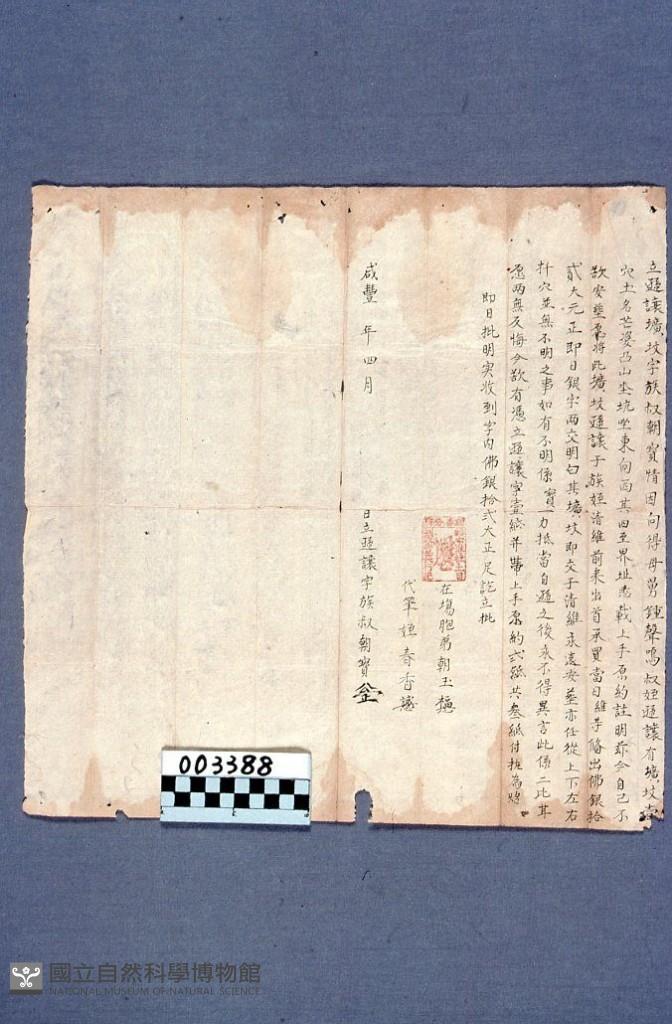 立退讓壙坟字族叔朝寶情因向得母舅鍾聲鳴叔姪退讓有壙坟壹
穴土名芒婆凸山坐坑坐東向西其四至界址悉載上手原約註明茲今自己不
欲安塟愿將此壙坟退讓于族姪清維前來出首承買當日維等俻出佛銀拾
貳大元正即日銀字兩交明白其壙坟即交于清維永遠安塟亦任從上下左右
扦穴並無不明之事如有不明係寶一力抵當自退之後永不得異言此係二比甘
愿兩無反悔今欲有憑立退讓字壹紙并帶上手原約弍紙共叁紙付執為炤
即日批明實收到字內佛銀拾弍大正足訖立批
在塲胞弟朝玉
代筆姪春香
咸豐 年四月 日立退讓字族叔朝寶
003388
國立自然科學博物館
NATIONAL MUSEUM OF NATURAL SCIENCE